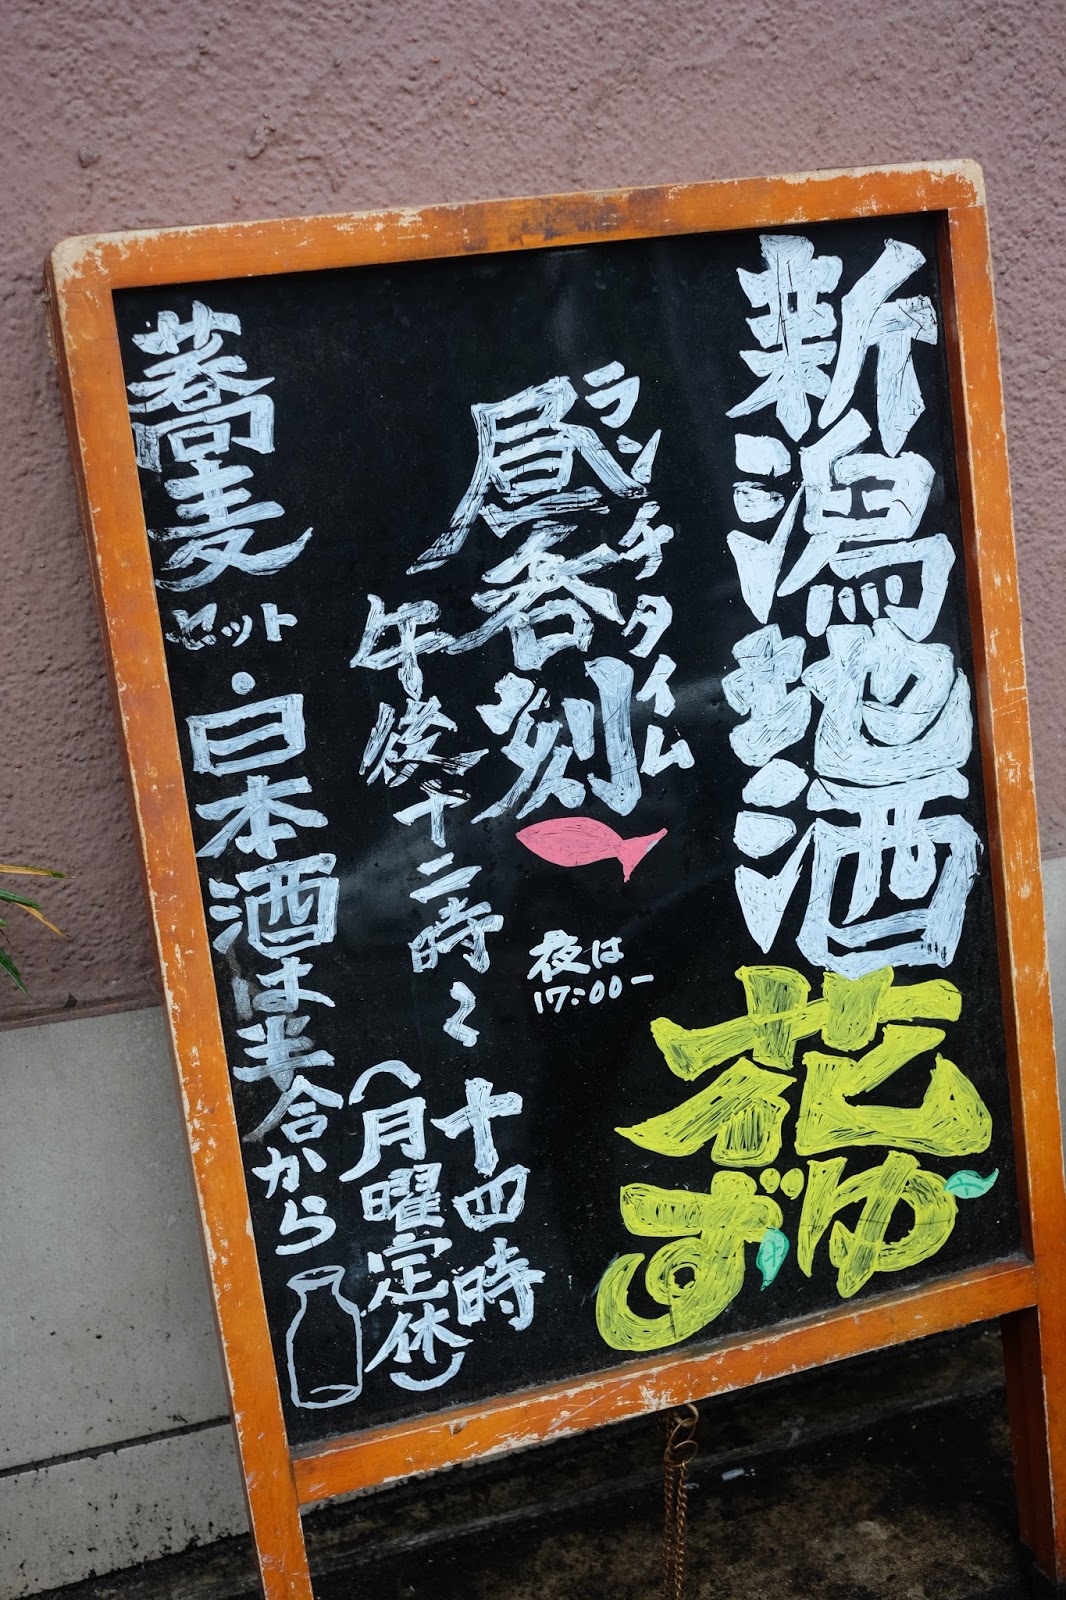 新潟地酒
花ゆず
ランチタイム
昼呑刻
夜は
17:00ー
午後十二時〜十四時
(月曜定休)
蕎麦セット・日本酒は半合から